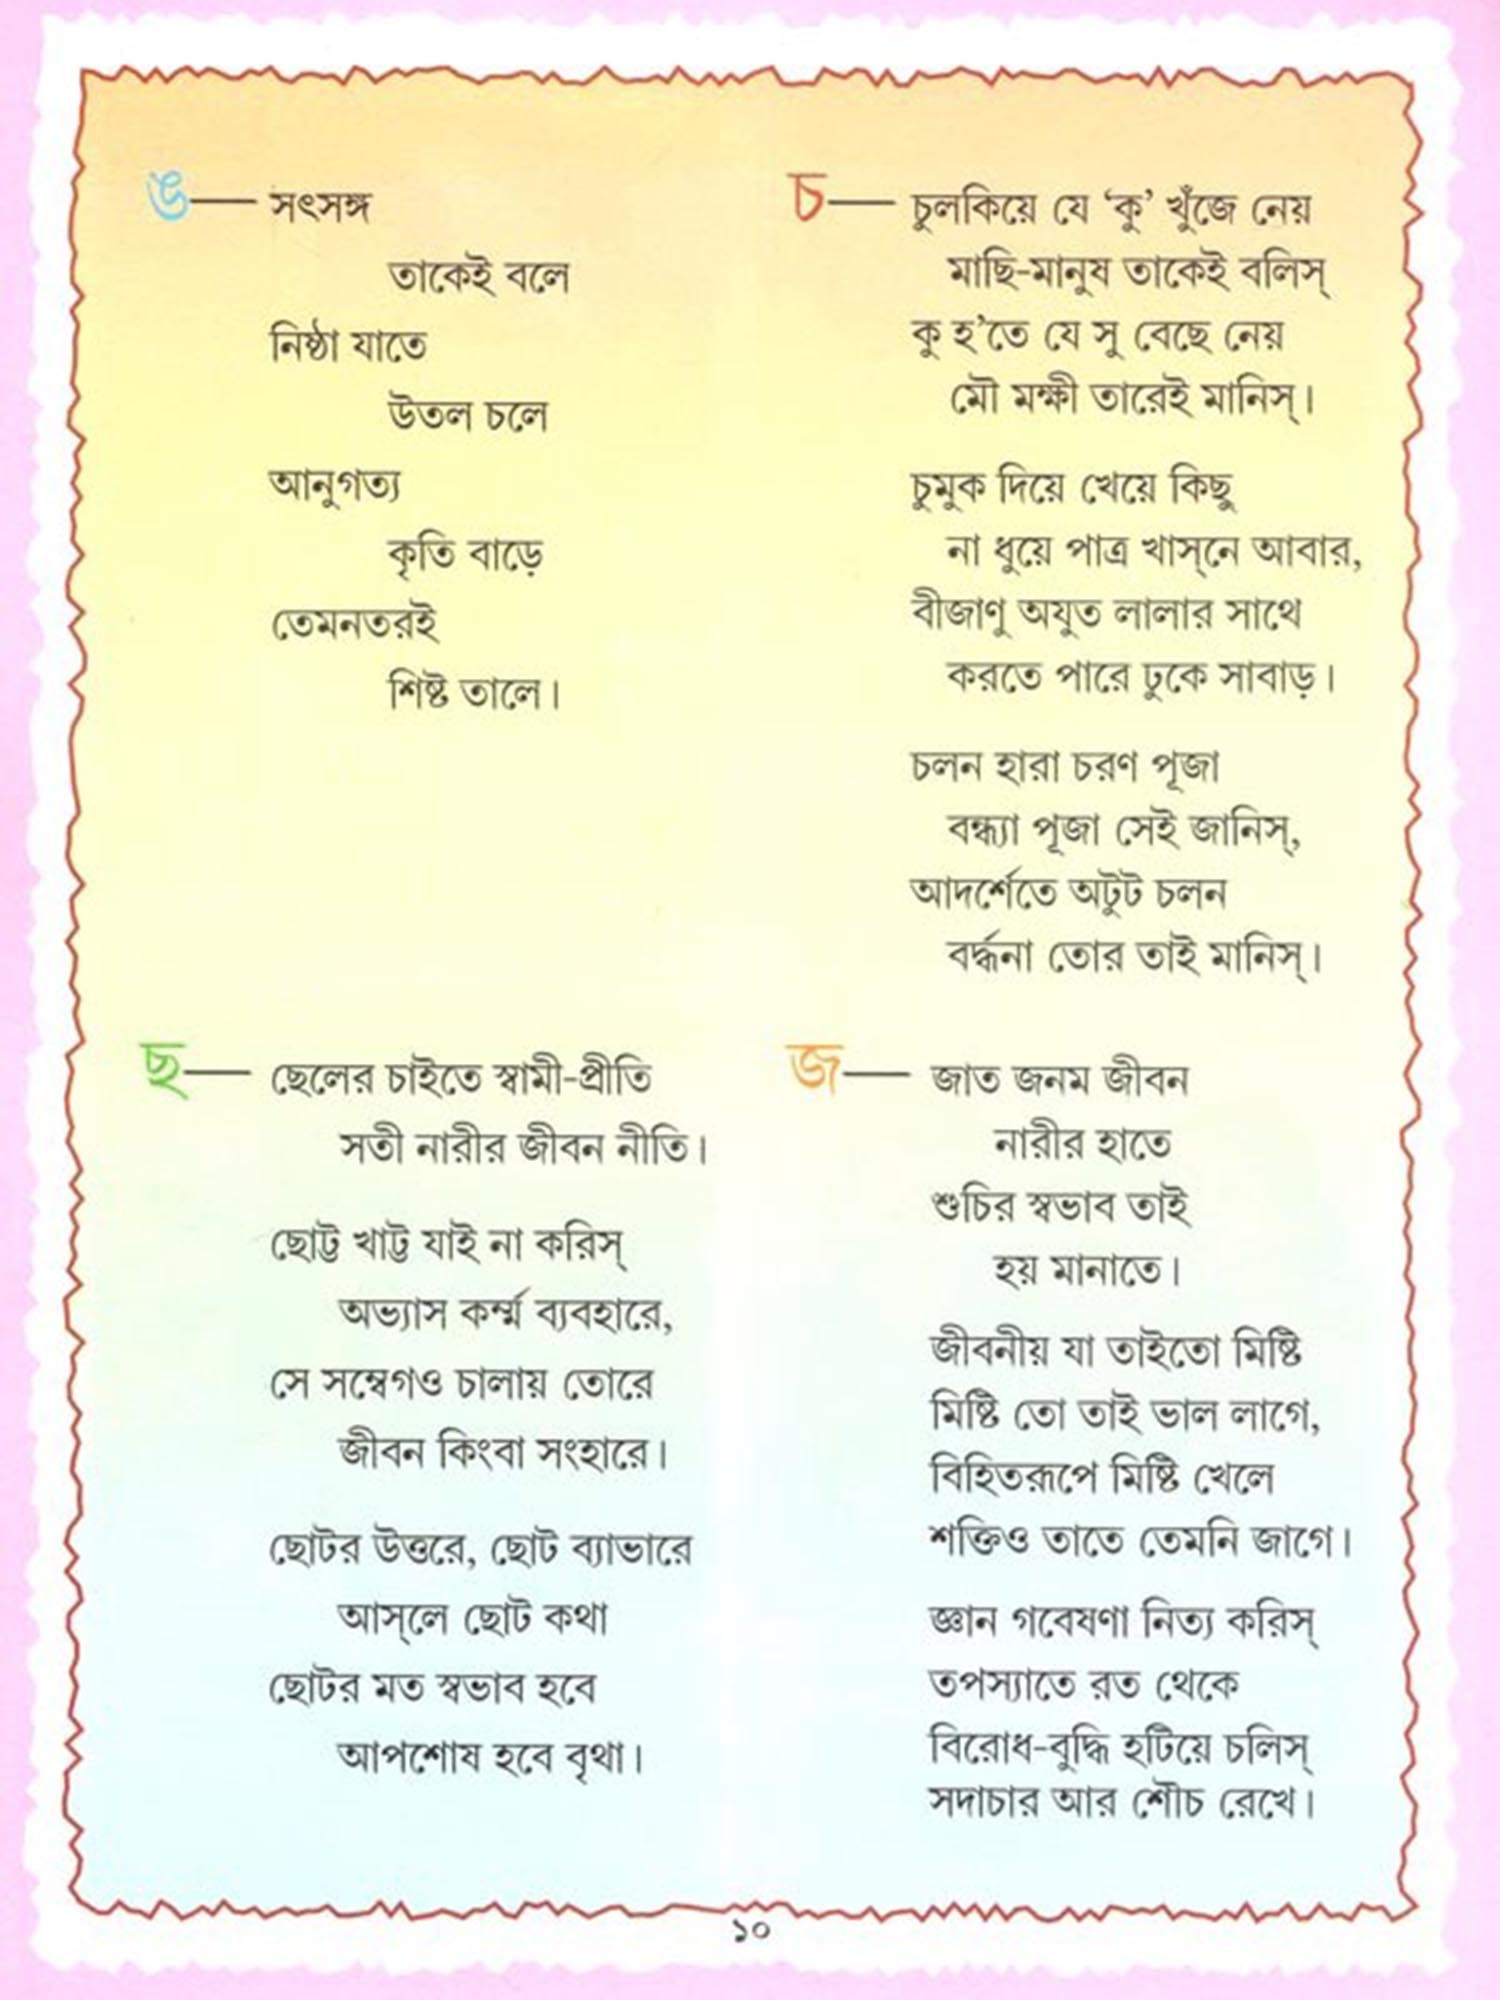 ঙ— সৎসঙ্গ
তাকেই বলে
নিষ্ঠা যাতে
উতল চলে
আনুগত্য
কৃতি বাড়ে
তেমনতরই
শিষ্ট তালে।
চ— চুলকিয়ে যে ‘কু’ খুঁজে নেয়
মাছি-মানুষ তাকেই বলিস্
কু হ’তে যে সু বেছে নেয়
মৌ মক্ষী তারেই মানিস্।
চুমুক দিয়ে খেয়ে কিছু
না ধুয়ে পাত্র খাস্‌নে আবার,
বীজাণু অযুত লালার সাথে
করতে পারে ঢুকে সাবাড়।
চলন হারা চরণ পূজা
বন্ধ্যা পূজা সেই জানিস্,
আদর্শেতে অটুট চলন
বর্দ্ধনা তোর তাই মানিস্।
ছ— ছেলের চাইতে স্বামী-প্রীতি
সতী নারীর জীবন নীতি।
ছোট্ট খাট্ট যাই না করিস্
অভ্যাস কর্ম্ম ব্যবহারে,
সে সম্বেগও চালায় তোরে
জীবন কিংবা সংহারে।
ছোটর উত্তরে, ছোট ব্যাভারে
আস্‌লে ছোট কথা
ছোটর মত স্বভাব হবে
আপশোষ হবে বৃথা।
জ— জাত জনম জীবন
নারীর হাতে
শুচির স্বভাব তাই
হয় মানাতে।
জীবনীয় যা তাইতো মিষ্টি
মিষ্টি তো তাই ভাল লাগে,
বিহিতরূপে মিষ্টি খেলে
শক্তিও তাতে তেমনি জাগে।
জ্ঞান গবেষণা নিত্য করিস্
তপস্যাতে রত থেকে
বিরোধ-বুদ্ধি হটিয়ে চলিস্
সদাচার আর শৌচ রেখে।
১০